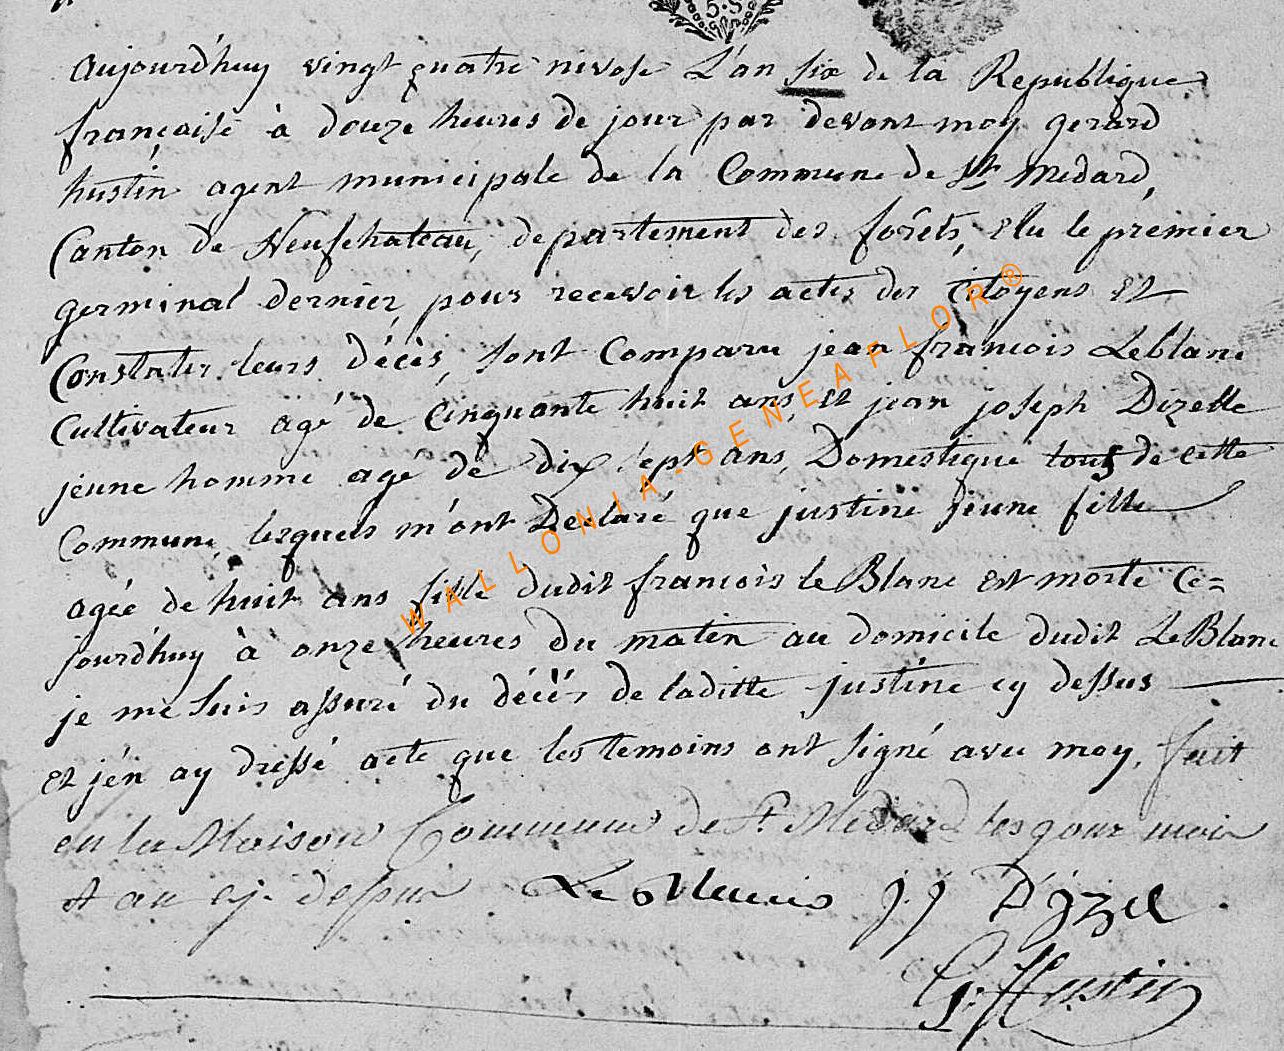 5. S
aujourd'huy vingt quatre nivose L'an six de la Republique
française à douze heures de jour par devant moy gerard
hustin agent municipale de la Commune de St medard,
Canton de Neufchateau, departement des forêts, Elu le premier
germinal dernier pour recevoir les actes des Citoyens et
Constater leurs décès, sont Comparu jean françois Leblanc
Cultivateur agé de Cinquante huit ans, et jean joseph Dizelle
jeune homme agé de dix sept ans, Domestique tous de cette
Commune, lesquels m'ont Declaré que justine jeune fille
agée de huit ans fille dudit francois le Blanc est morte ce=
jourd'huy à onze heures du matin au domicile dudit Le Blanc
je me suis assuré du décès de laditte justine cy dessus
et j'én ay dressé acte que les temoins ont signé avec moy, fait
en la Maison Commune de St Medard les jour mois
et an cy dessus
J J D'izel
G: Hustin
WALLONIA-GENEAFLOR®